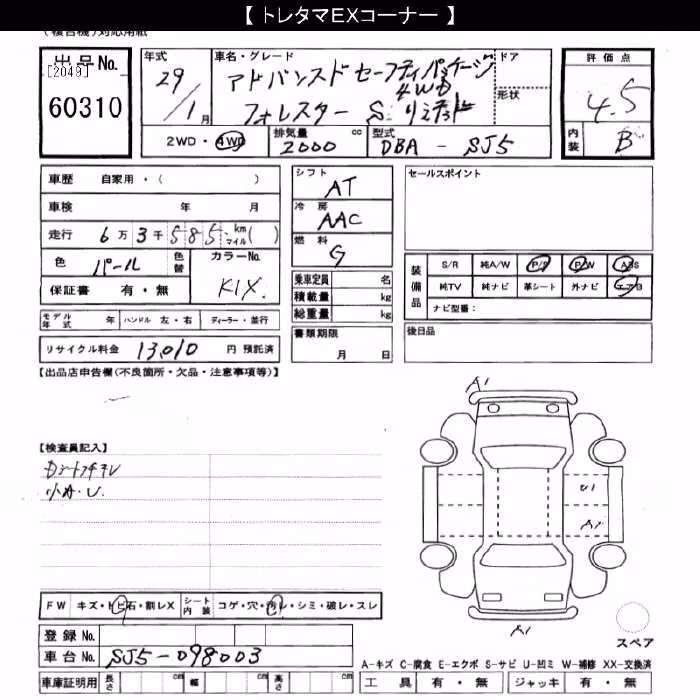 【 トレタマEXコーナー 】
(複合機)対応用紙
出品No.
[2049]
60310
年式
29/1月
車名・グレード
アドバンスドセーフティパッケージ
4WD
フォレスター S・リミテッド
ドア
形状
評価点
4.5
内装
B
2WD・4WD
排気量 cc
2000
型式
DBA - SJ5
車歴 自家用・( )
車検 年 月
走行 6万3千585 km マイル( )
色 パール 色替
カラーNo. K1X
保証書 有・無
シフト
AT
冷房
AAC
燃料
G
乗車定員 名
積載量 kg
総重量 kg
セールスポイント
装備品
S/R 純A/W P/S P/W ABS
純TV 純ナビ 革シート 外ナビ エアB
ナビ型番:
モデル年式 年 ハンドル 左・右 ディーラー・並行
書類期限
月 日
後日品
リサイクル料金 13,010 円 預託済
【出品店申告欄(不良箇所・欠品・注意事項等)】
【検査員記入】
小キ・U
A1
U1
A1
A1
FW キズ・トビ石・割レX
シート内装 コゲ・穴・汚レ・シミ・破レ・スレ
登録No.
車台No. SJ5-098003
スペア
A-キズ C-腐食 E-エクボ S-サビ U-凹ミ W-補修 XX-交換済
車庫証明用 長さ cm 幅 cm 高さ cm
工具 有・無 ジャッキ 有・無